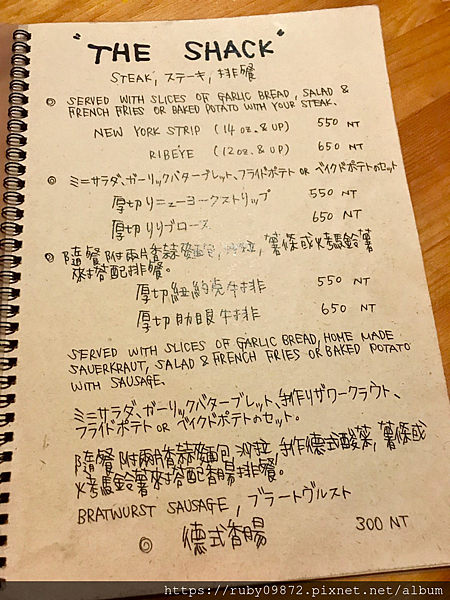 "THE SHACK"
STEAK, ステーキ, 排餐
◎ SERVED WITH SLICES OF GARLIC BREAD, SALAD &
FRENCH FRIES OR BAKED POTATO WITH YOUR STEAK.
NEW YORK STRIP (14 oz. & UP) 550 NT
RIBEYE (12 oz. & UP) 650 NT
◎ ミニサラダ、ガーリックバターブレット、フライドポテト OR ベイクドポテトのセット
厚切りニューヨークストリップ 550 NT
厚切りリブロース 650 NT
◎ 隨餐附兩片香蒜麵包, 沙拉, 薯條或烤馬鈴薯
來搭配排餐。
厚切紐約克牛排 550 NT
厚切肋眼牛排 650 NT
SERVED WITH SLICES OF GARLIC BREAD, HOME MADE
SAUERKRAUT, SALAD & FRENCH FRIES OR BAKED POTATO
WITH SAUSAGE.
ミニサラダ、ガーリックバターブレット、手作りザワークラウト、
フライドポテト OR ベイクドポテトのセット。
隨餐附兩片香蒜麵包, 沙拉, 手作德式酸菜, 薯條或
烤馬鈴薯來搭配香腸排餐。
BRATWURST SAUSAGE, ブラートヴルスト
◎ 德式香腸 300 NT
https://ruby09872.pixnet.net/album